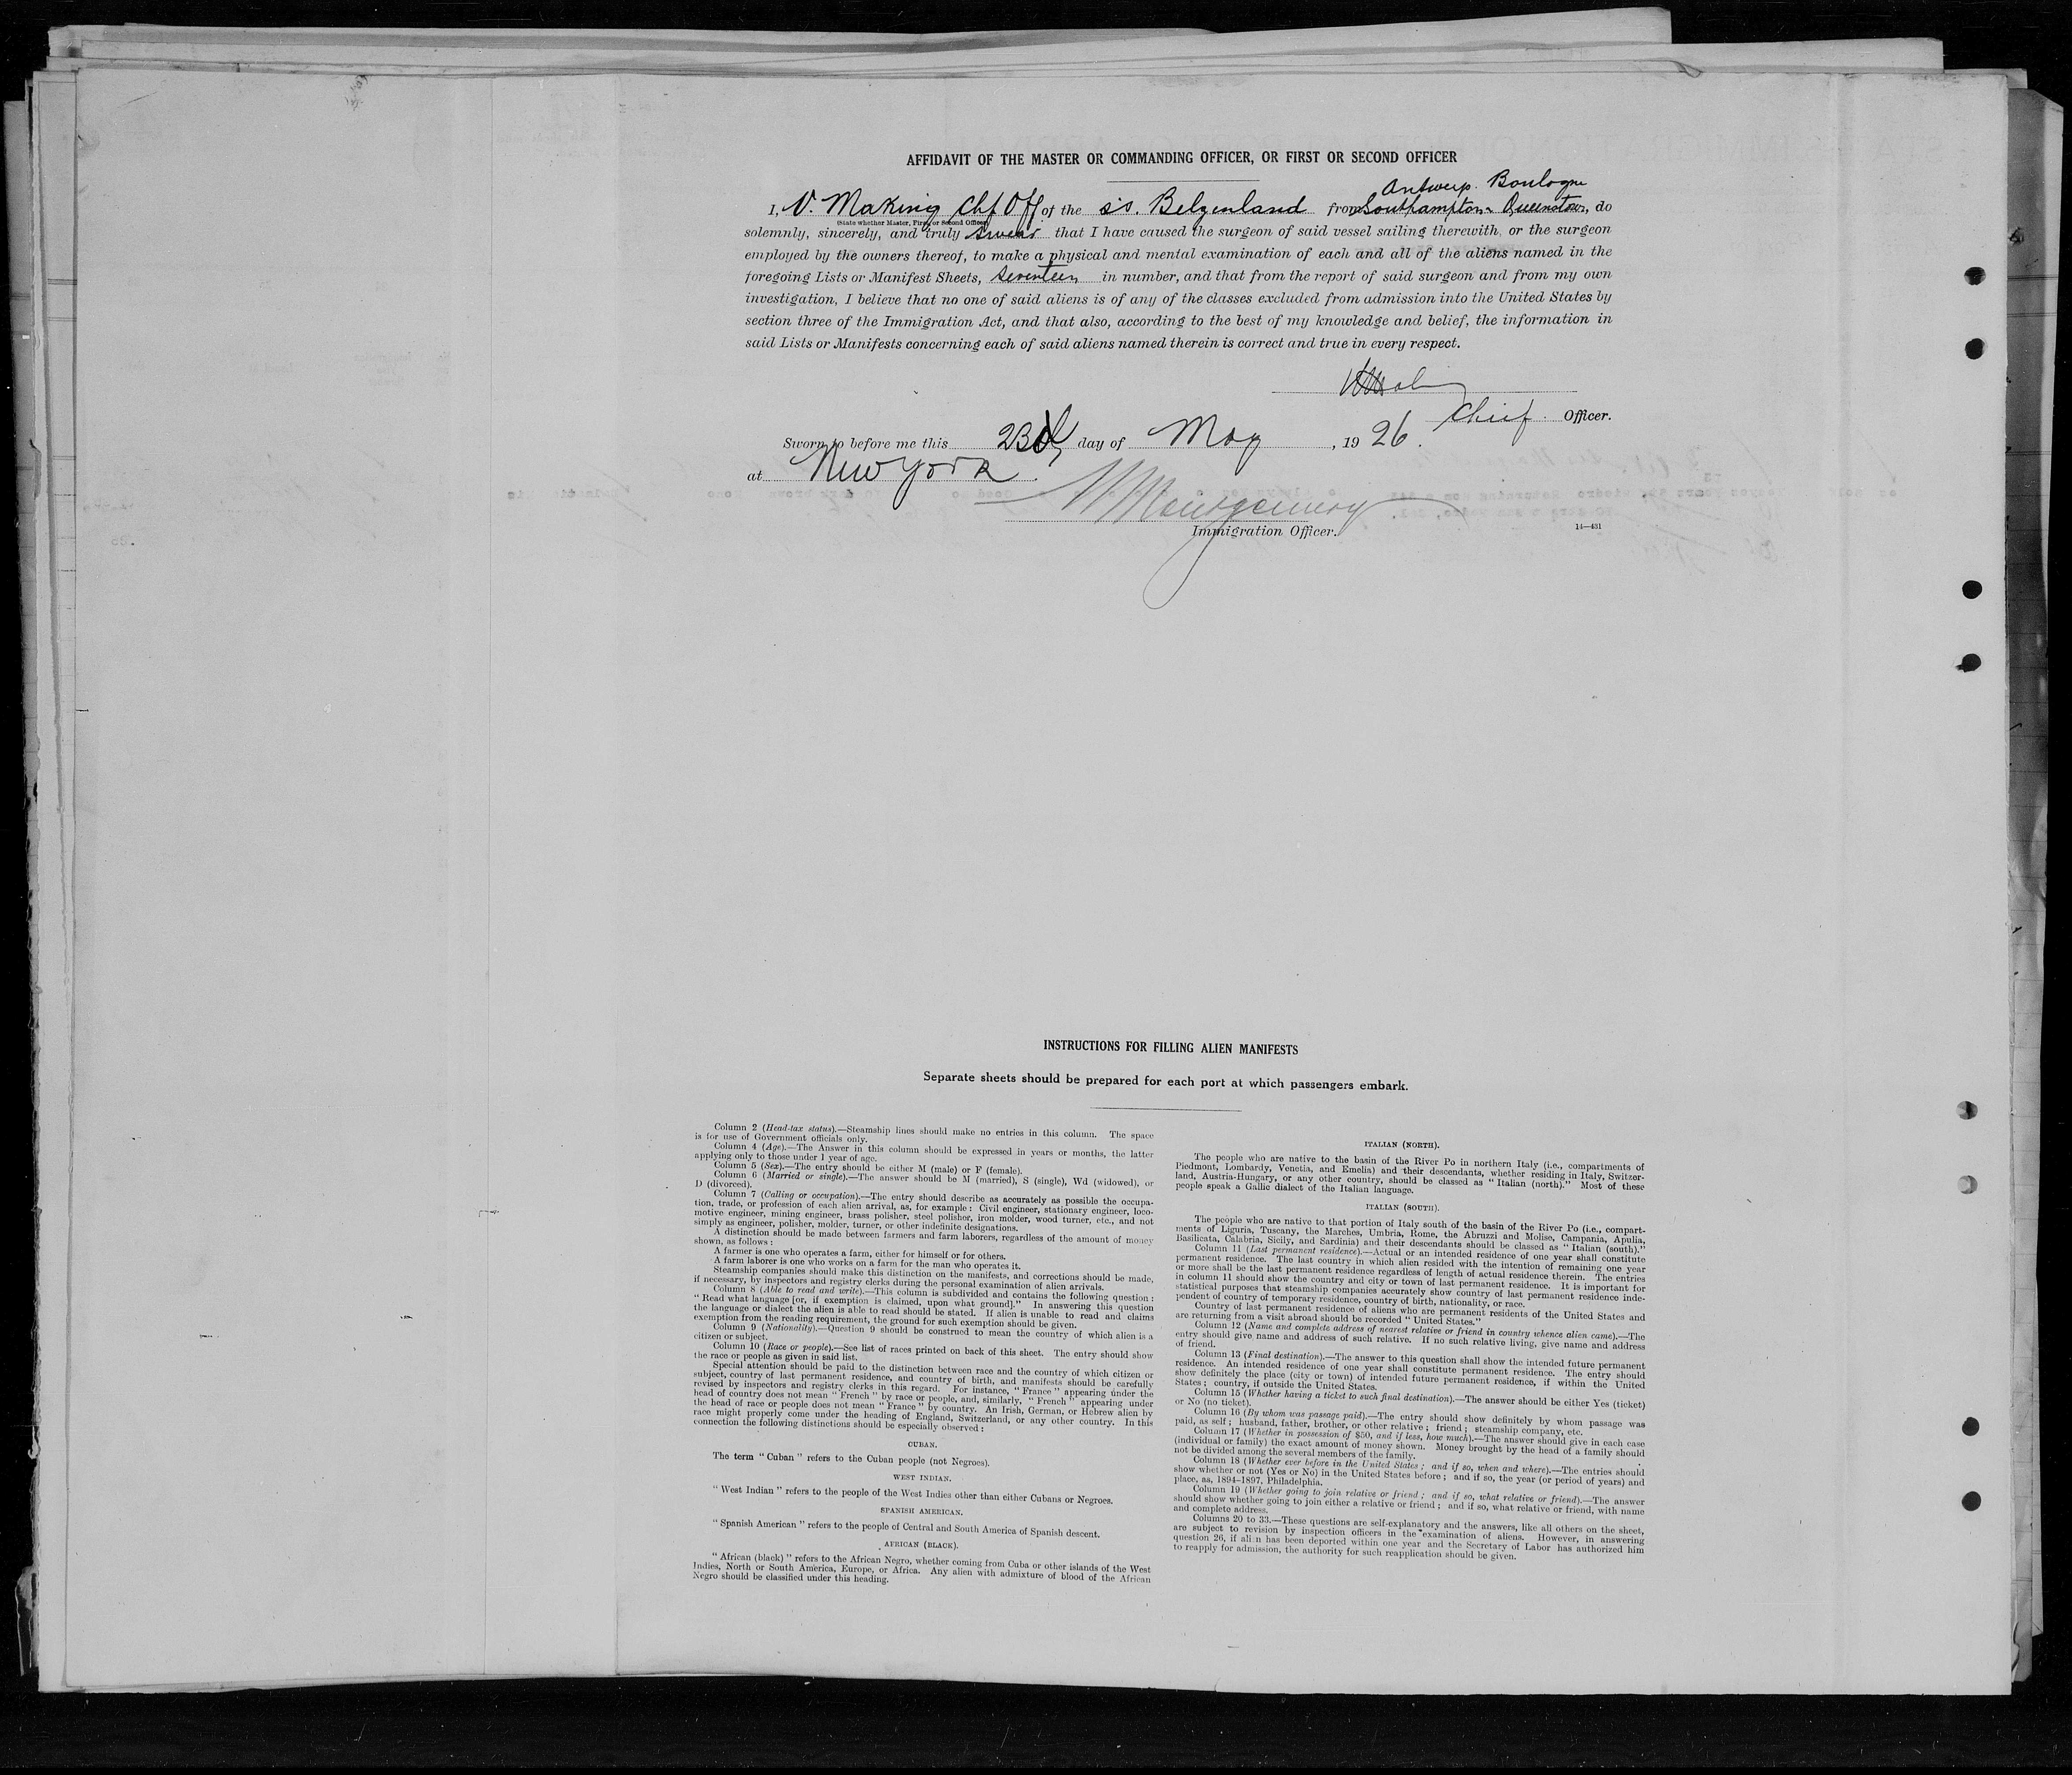 AFFIDAVIT OF THE MASTER OR COMMANDING OFFICER, OR FIRST OR SECOND OFFICER
Antwerp. Boulogne
I, V. Making Chf Off of the s.s. Belgenland from Southampton - Queenstown, do
(State whether Master, First, or Second Officer)
solemnly, sincerely, and truly swear that I have caused the surgeon of said vessel sailing therewith, or the surgeon
employed by the owners thereof, to make a physical and mental examination of each and all of the aliens named in the
foregoing Lists or Manifest Sheets, seventeen in number, and that from the report of said surgeon and from my own
investigation, I believe that no one of said aliens is of any of the classes excluded from admission into the United States by
section three of the Immigration Act, and that also, according to the best of my knowledge and belief, the information in
said Lists or Manifests concerning each of said aliens named therein is correct and true in every respect.
Chief Officer.
Sworn to before me this 23d day of May, 1926.
at New York
Montgomery
Immigration Officer.
14—431
INSTRUCTIONS FOR FILLING ALIEN MANIFESTS
Separate sheets should be prepared for each port at which passengers embark.
Column 2 (Head-tax status).—Steamship lines should make no entries in this column. The space
is for use of Government officials only.
Column 4 (Age).—The Answer in this column should be expressed in years or months, the latter
applying only to those under 1 year of age.
Column 5 (Sex).—The entry should be either M (male) or F (female).
Column 6 (Married or single).—The answer should be M (married), S (single), Wd (widowed), or
D (divorced).
Column 7 (Calling or occupation).—The entry should describe as accurately as possible the occupa-
tion, trade, or profession of each alien arrival, as, for example : Civil engineer, stationary engineer, loco-
motive engineer, mining engineer, brass polisher, steel polisher, iron molder, wood turner, etc., and not
simply as engineer, polisher, molder, turner, or other indefinite designations.
A distinction should be made between farmers and farm laborers, regardless of the amount of money
shown, as follows :
A farmer is one who operates a farm, either for himself or for others.
A farm laborer is one who works on a farm for the man who operates it.
Steamship companies should make this distinction on the manifests, and corrections should be made,
if necessary, by inspectors and registry clerks during the personal examination of alien arrivals.
Column 8 (Able to read and write).—This column is subdivided and contains the following question :
“ Read what language [or, if exemption is claimed, upon what ground].” In answering this question
the language or dialect the alien is able to read should be stated. If alien is unable to read and claims
exemption from the reading requirement, the ground for such exemption should be given.
Column 9 (Nationality).—Question 9 should be construed to mean the country of which alien is a
citizen or subject.
Column 10 (Race or people).—See list of races printed on back of this sheet. The entry should show
the race or people as given in said list.
Special attention should be paid to the distinction between race and the country of which citizen or
subject, country of last permanent residence, and country of birth, and manifests should be carefully
revised by inspectors and registry clerks in this regard. For instance, “ France ” appearing under the
head of country does not mean “ French ” by race or people, and, similarly, “ French ” appearing under
the head of race or people does not mean “ France ” by country. An Irish, German, or Hebrew alien by
race might properly come under the heading of England, Switzerland, or any other country. In this
connection the following distinctions should be especially observed :
CUBAN.
The term “ Cuban ” refers to the Cuban people (not Negroes).
WEST INDIAN.
“ West Indian ” refers to the people of the West Indies other than either Cubans or Negroes.
SPANISH AMERICAN.
“ Spanish American ” refers to the people of Central and South America of Spanish descent.
AFRICAN (BLACK).
“ African (black) ” refers to the African Negro, whether coming from Cuba or other islands of the West
Indies, North or South America, Europe, or Africa. Any alien with admixture of blood of the African
Negro should be classified under this heading.
ITALIAN (NORTH).
The people who are native to the basin of the River Po in northern Italy (i.e., compartments of
Piedmont, Lombardy, Venetia, and Emelia) and their descendants, whether residing in Italy, Switzer-
land, Austria-Hungary, or any other country, should be classed as “ Italian (north).” Most of these
people speak a Gallic dialect of the Italian language.
ITALIAN (SOUTH).
The people who are native to that portion of Italy south of the basin of the River Po (i.e., compart-
ments of Liguria, Tuscany, the Marches, Umbria, Rome, the Abruzzi and Molise, Campania, Apulia,
Basilicata, Calabria, Sicily, and Sardinia) and their descendants should be classed as “ Italian (south).”
Column 11 (Last permanent residence).—Actual or an intended residence of one year shall constitute
permanent residence. The last country in which alien resided with the intention of remaining one year
or more shall be the last permanent residence regardless of length of actual residence therein. The entries
in column 11 should show the country and city or town of last permanent residence. It is important for
statistical purposes that steamship companies accurately show country of last permanent residence inde-
pendent of country of temporary residence, country of birth, nationality, or race.
Country of last permanent residence of aliens who are permanent residents of the United States and
are returning from a visit abroad should be recorded “ United States.”
Column 12 (Name and complete address of nearest relative or friend in country whence alien came).—The
entry should give name and address of such relative. If no such relative living, give name and address
of friend.
Column 13 (Final destination).—The answer to this question shall show the intended future permanent
residence. An intended residence of one year shall constitute permanent residence. The entry should
show definitely the place (city or town) of intended future permanent residence, if within the United
States ; country, if outside the United States.
Column 15 (Whether having a ticket to such final destination).—The answer should be either Yes (ticket)
or No (no ticket).
Column 16 (By whom was passage paid).—The entry should show definitely by whom passage was
paid, as self ; husband, father, brother, or other relative ; friend ; steamship company, etc.
Column 17 (Whether in possession of $50, and if less, how much).—The answer should give in each case
(individual or family) the exact amount of money shown. Money brought by the head of a family should
not be divided among the several members of the family.
Column 18 (Whether ever before in the United States ; and if so, when and where).—The entries should
show whether or not (Yes or No) in the United States before ; and if so, the year (or period of years) and
place, as, 1894–1897, Philadelphia.
Column 19 (Whether going to join relative or friend ; and if so, what relative or friend).—The answer
should show whether going to join either a relative or friend ; and if so, what relative or friend, with name
and complete address.
Columns 20 to 33.—These questions are self-explanatory and the answers, like all others on the sheet,
are subject to revision by inspection officers in the examination of aliens. However, in answering
question 26, if alien has been deported within one year and the Secretary of Labor has authorized him
to reapply for admission, the authority for such reapplication should be given.